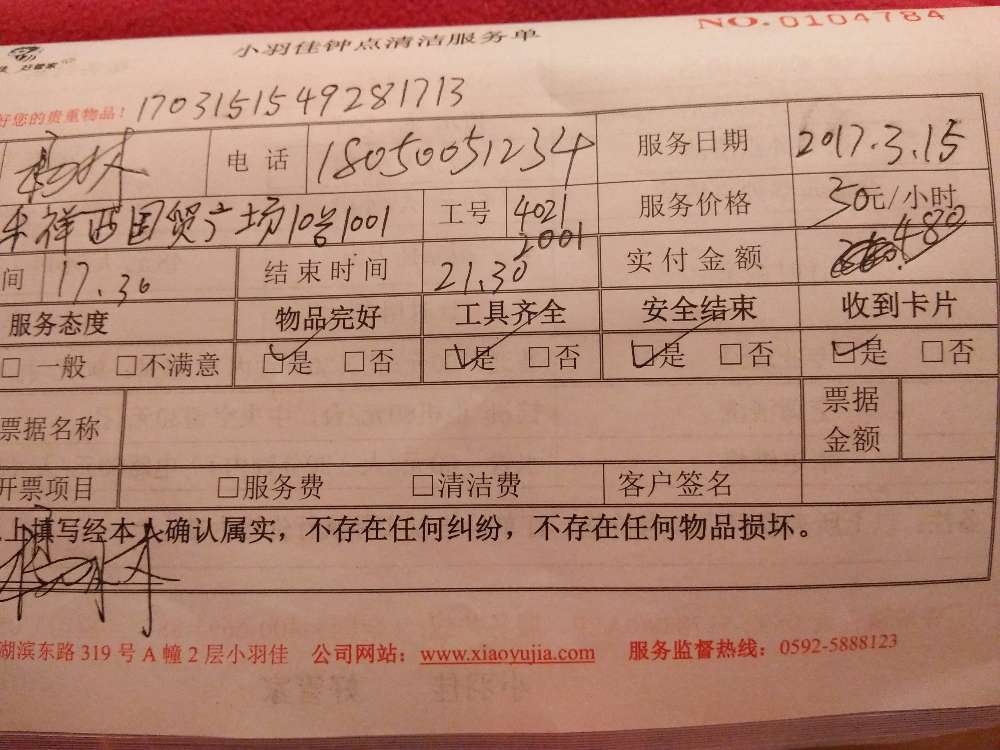 NO.0104784
小羽佳钟点清洁服务单
好管家
好您的贵重物品！ 1703151549281713
电话 18050051234 服务日期 2017.3.15
祥西国贸广场10号1001 工号 4021 2001 服务价格 30元/小时
间 17.30 结束时间 21.30 实付金额 480
服务态度 物品完好 工具齐全 安全结束 收到卡片
□ 一般 □不满意 □是 □否 □是 □否 □是 □否 □是 □否
票据名称 票据金额
开票项目 □服务费 □清洁费 客户签名
上填写经本人确认属实，不存在任何纠纷，不存在任何物品损坏。
湖滨东路 319 号 A 幢 2 层小羽佳 公司网站：www.xiaoyujia.com 服务监督热线：0592-5888123